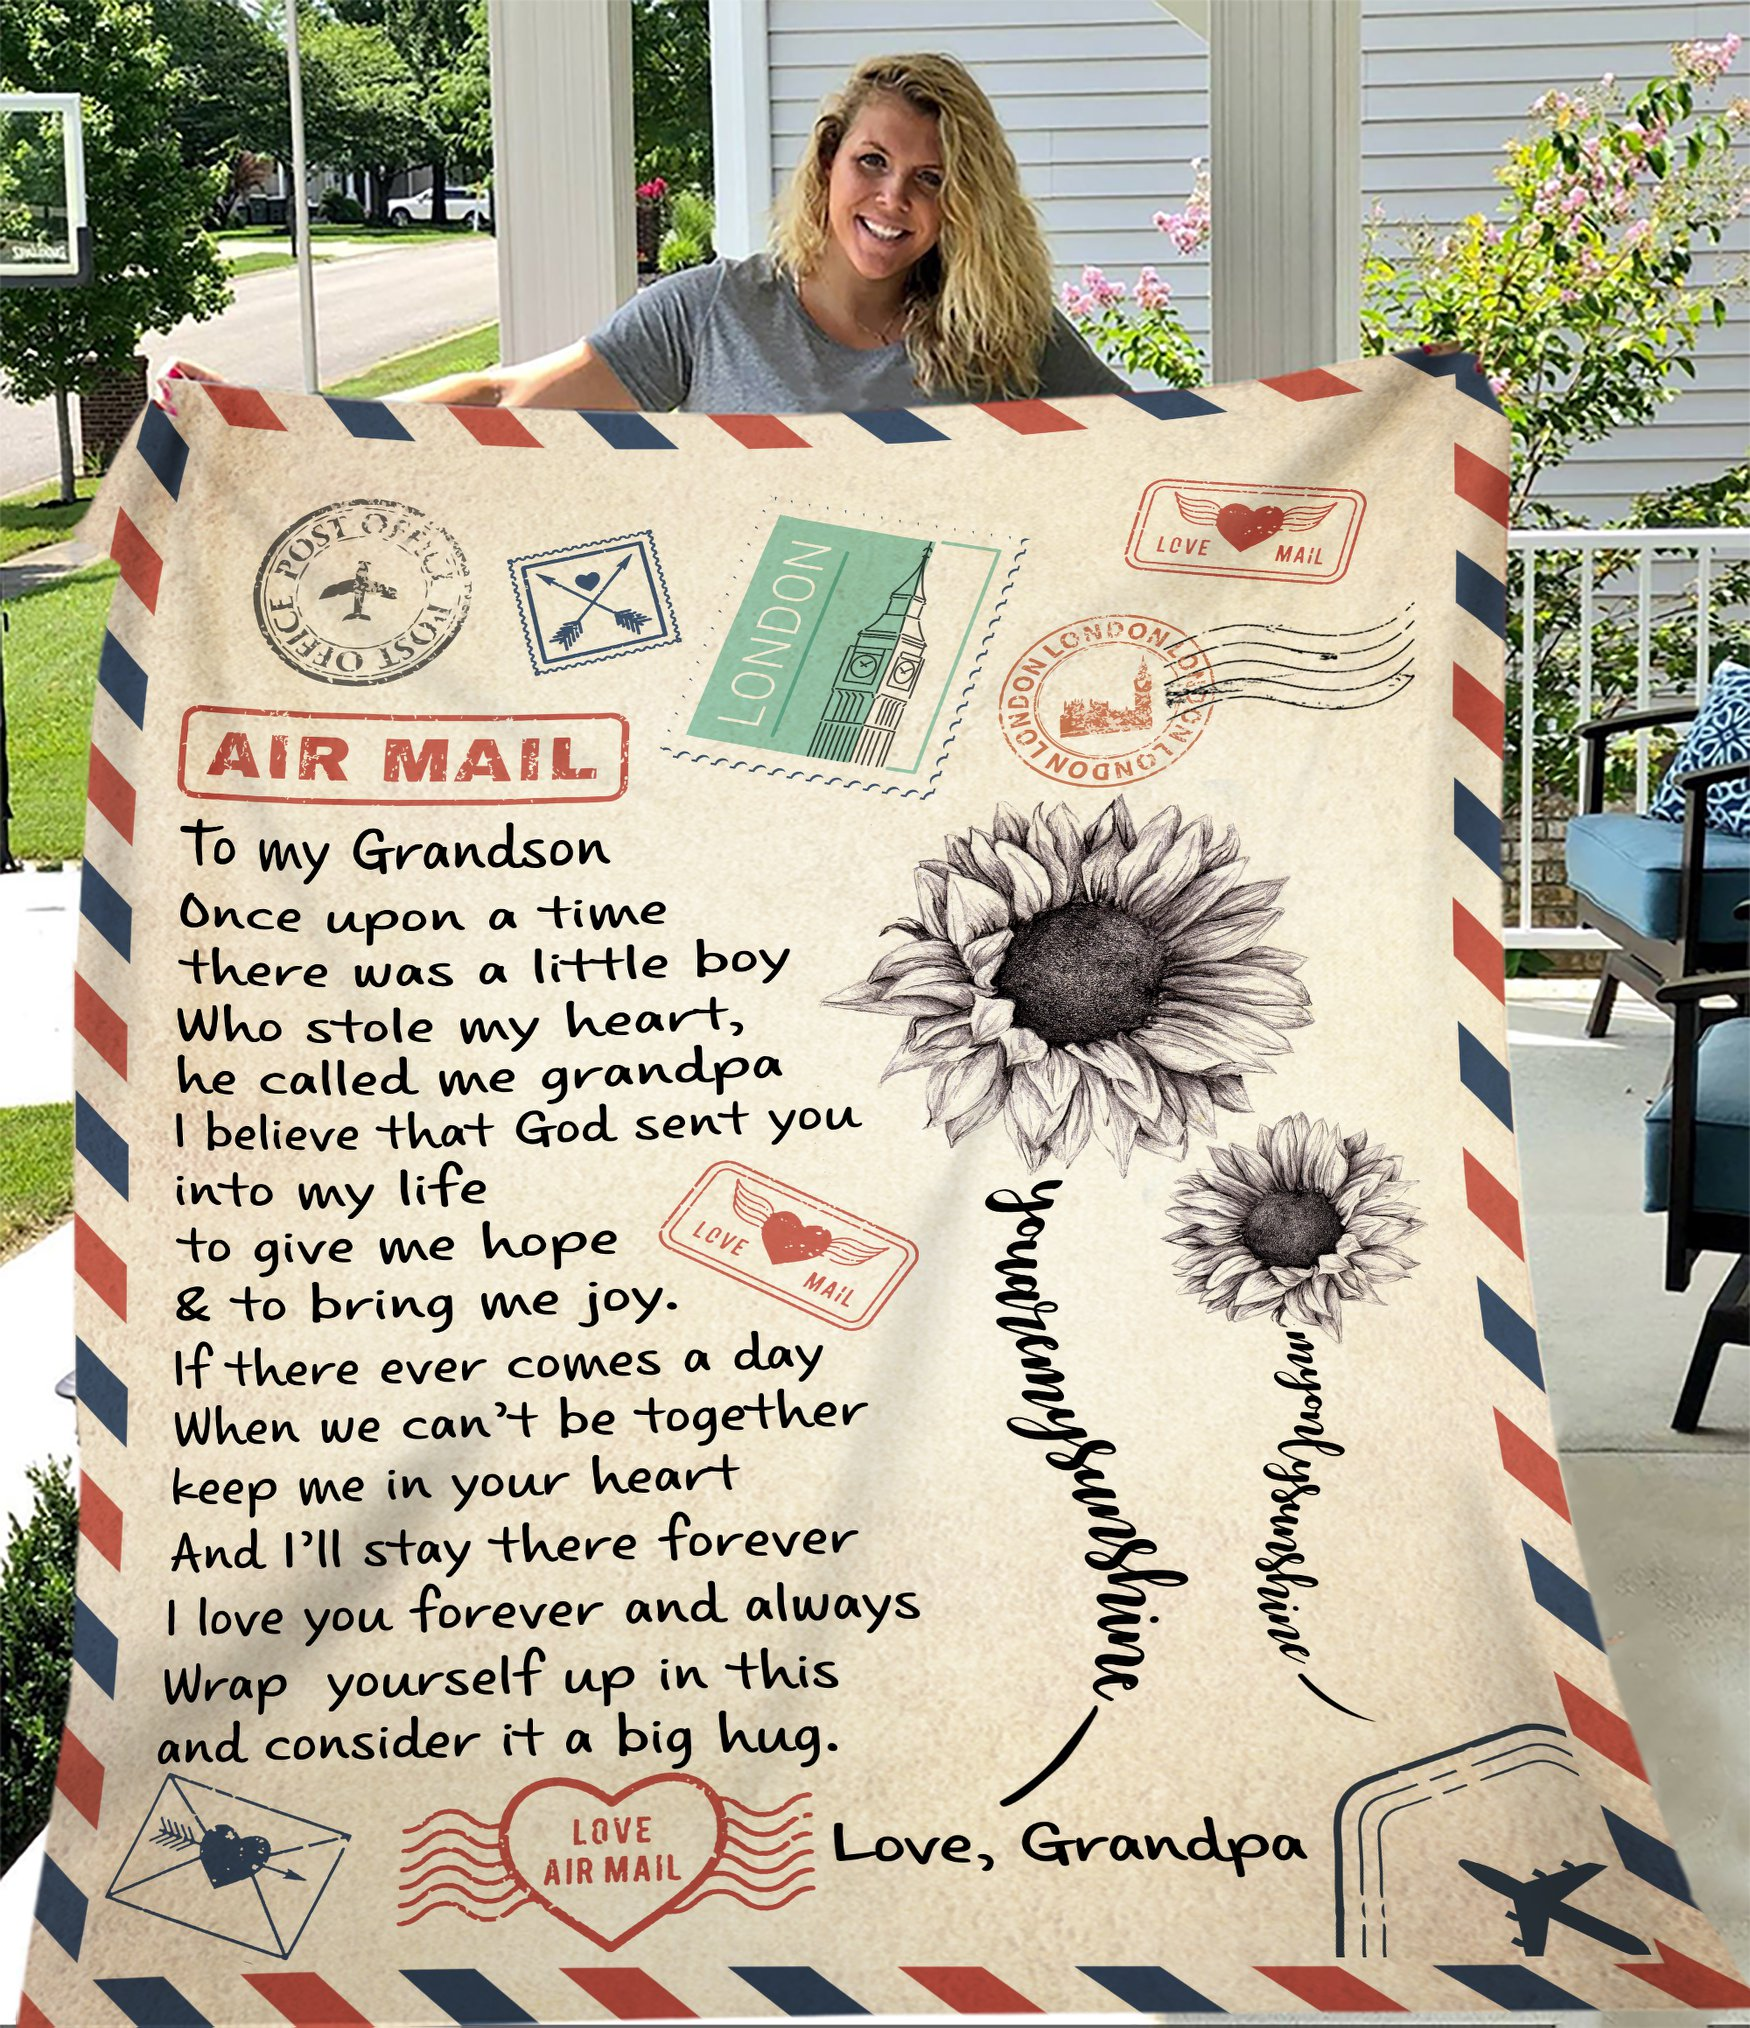 SPALDING
POST OFFICE POST OFFICE
LONDON
LOVE MAIL
LONDON LONDON LONDON LONDON LONDON
AIR MAIL
To my Grandson
Once upon a time
there was a little boy
Who stole my heart,
he called me grandpa
I believe that God sent you
into my life
to give me hope
& to bring me joy.
LOVE MAIL
If there ever comes a day
When we can't be together
keep me in your heart
And I'll stay there forever
I love you forever and always
Wrap yourself up in this
and consider it a big hug.
you are my sunshine
my only sunshine
LOVE
AIR MAIL
Love, Grandpa